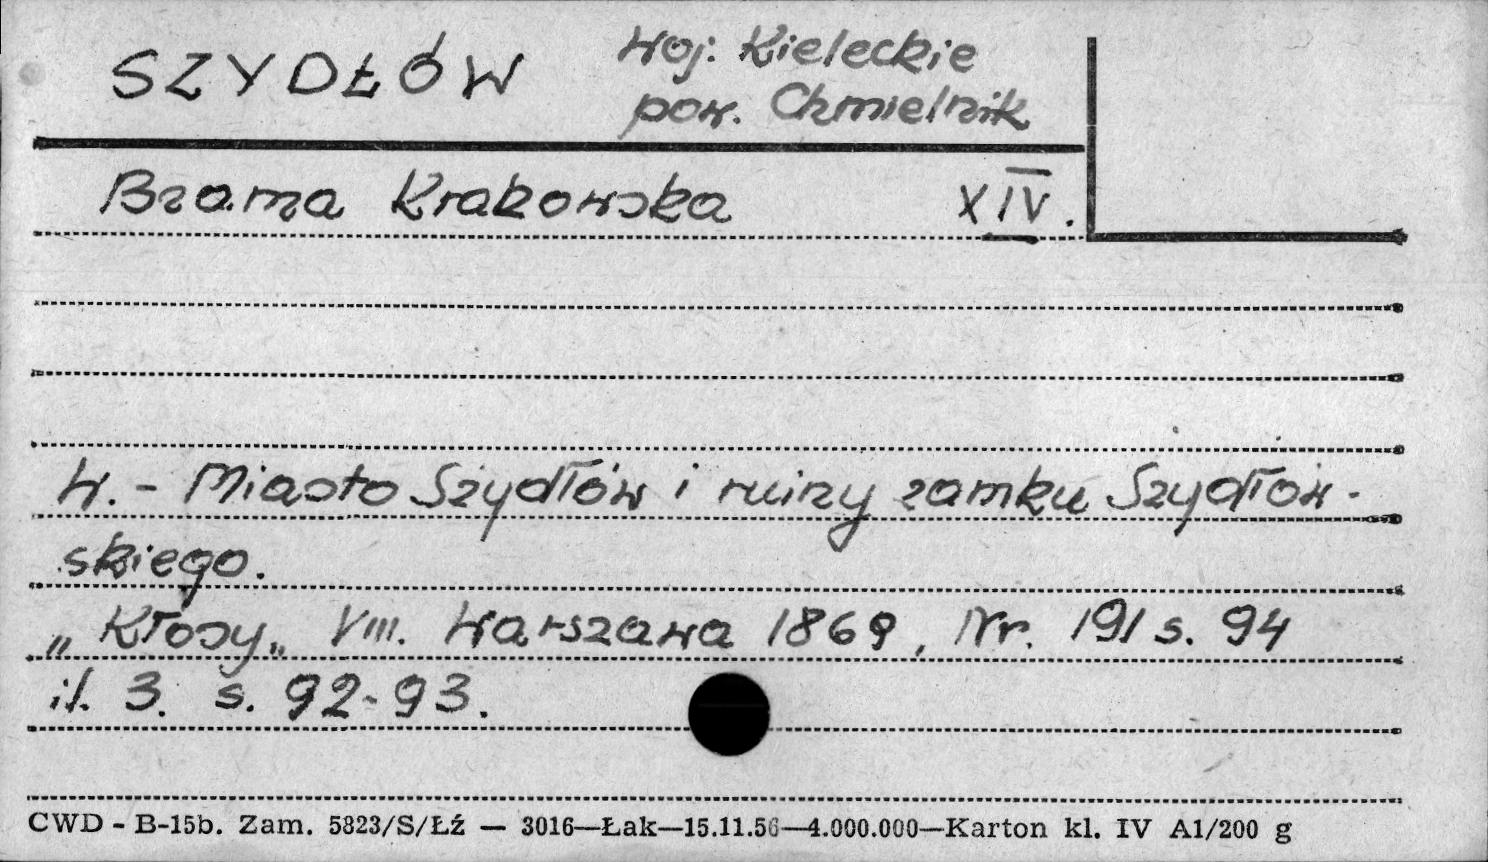 SZYDŁÓW
woj. Kieleckie
pow. Chmielnik
Brama Krakowska XIV.
W. - Miasto Szydłów i ruiny zamku Szydłow-
skiego.
„Kłosy„ VIII. Warszawa 1869, Nr. 191 s. 94
il. 3. s. 92-93.
CWD - B-15b. Zam. 5823/S/Łź — 3016—Łak—15.11.56—4.000.000—Karton kl. IV A1/200 g